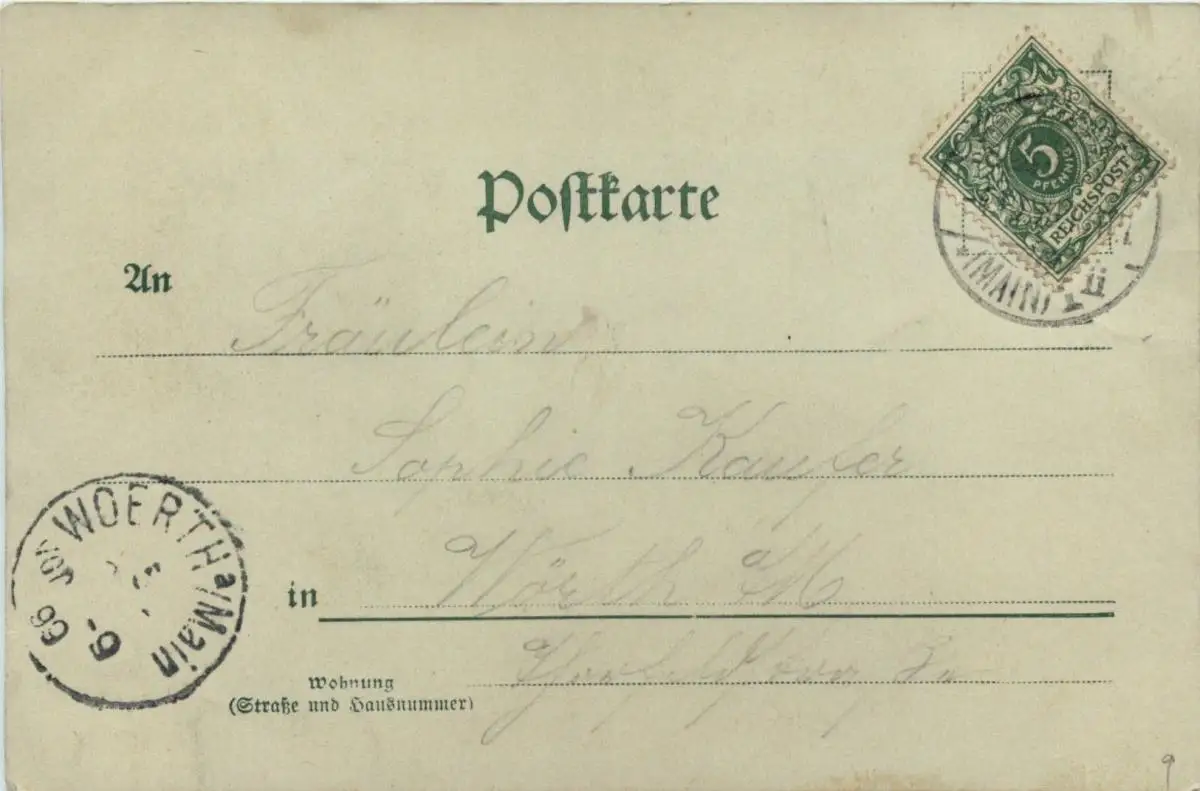 Postkarte
5
PFENNIG
REICHSPOST
(MAIN)
An
Fräulein
Sophie Kaufer
WOERTH a/Main
in
Wörth M
Wohnung
(Straße und Hausnummer)
9